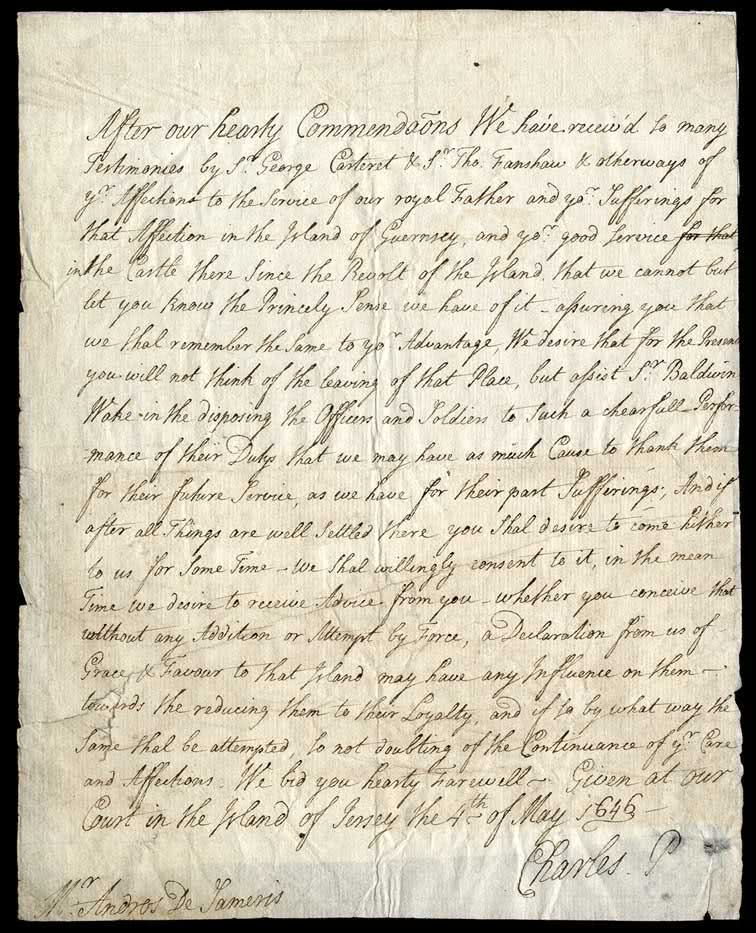 After our hearty Commendaõns We have receiv'd so many
Testimonies by Sr. George Carteret & Sr. Tho. Fanshaw & otherways of
yr. Affections to the Service of our royal Father and yor. Sufferings for
that Affection in the Island of Guernsey, and yor. good Service for that
in the Castle there Since the Revolt of the Island, that we cannot but
let you Know the Princely Sense we have of it - assuring you that
we shal remember the Same to yor. Advantage, We desire that for the Present
you will not think of the leaving of that Place, but assist Sr. Baldwin
Wake in the disposing the Officers and Soldiers to Such a chearfull Perfor-
mance of their Dutys that we may have as much Cause to thank them
for their future Service, as we have for their past Sufferings; And if
after all Things are well Settled there you Shal desire to come hither
to us for Some Time - we Shal willingly consent to it, in the mean
Time we desire to receive Advice from you - whether you conceive that
without any Addition or Attempt by Force, a Declaration from us of
Grace & Favour to that Island may have any Influence on them -
towards the reducing them to their Loyalty, and if so by what way the
Same shal be attempted, So not doubting of the Continuance of yr. Care
and Affections. We bid you hearty Farewell - Given at our
Court in the Island of Jersey the 4th of May 1646 -
Charles. P
Mr. Andros De Sameris